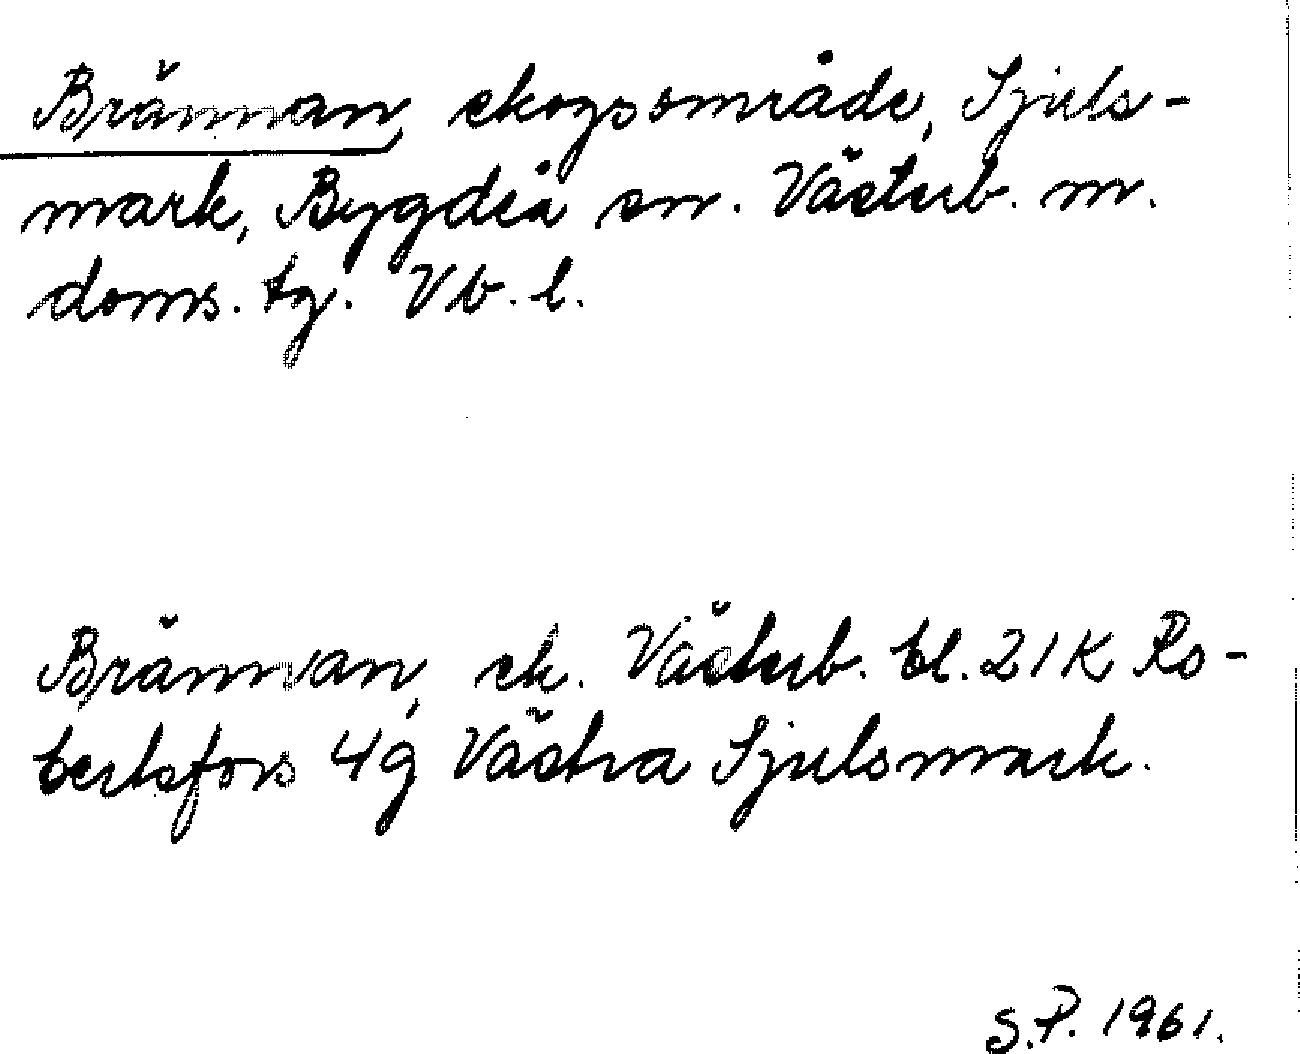 Brännan, skogsområde, Sjuls-
mark, Bygdeå sn. Västerb. m.
doms. tg. Vb. l.
Brännan, ek. Västerb. bl. 21K Ro-
bertsfors 4g Västra Sjulsmark.
S.P. 1961.